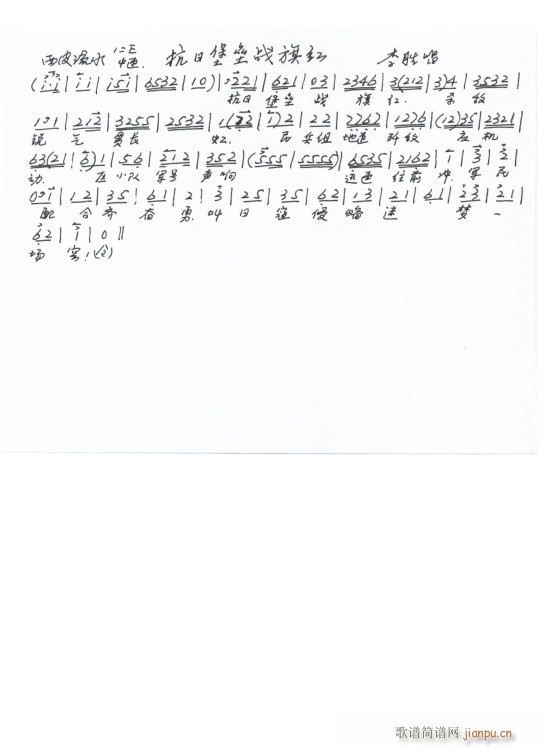 西皮流水 1=E 抗日堡垒战旗红 李胜唱
(i i | i i | i 5 i | 6532 | 1 0) | 221 | 621 | 03 | 2346 | 3(212 | 3)4 | 3532 |
抗日堡垒战旗红 杀敌
101 | 212 | 3255 | 2532 | 1(22 | 1)2 | 22 | 2767 | 1276 | (12)35 | 2321 |
锐气贯长虹 民兵组地道 歼敌 应机
63(21 | 3)1 | 56 | 212 | 352 | (555 | 5555) | 6535 | 2162 | 1 | 3 | 2 |
动 区小队 军号声响 迅速往前冲 军民
01 | 12 | 35 | 61 | 2 | 3 | 25 | 35 | 62 | 13 | 21 | 61 | 23 | 21 |
配合齐奋勇 叫日寇侵略迷梦一
62 | 1 | 0 ||
场空!
歌谱简谱网 jianpu.cn